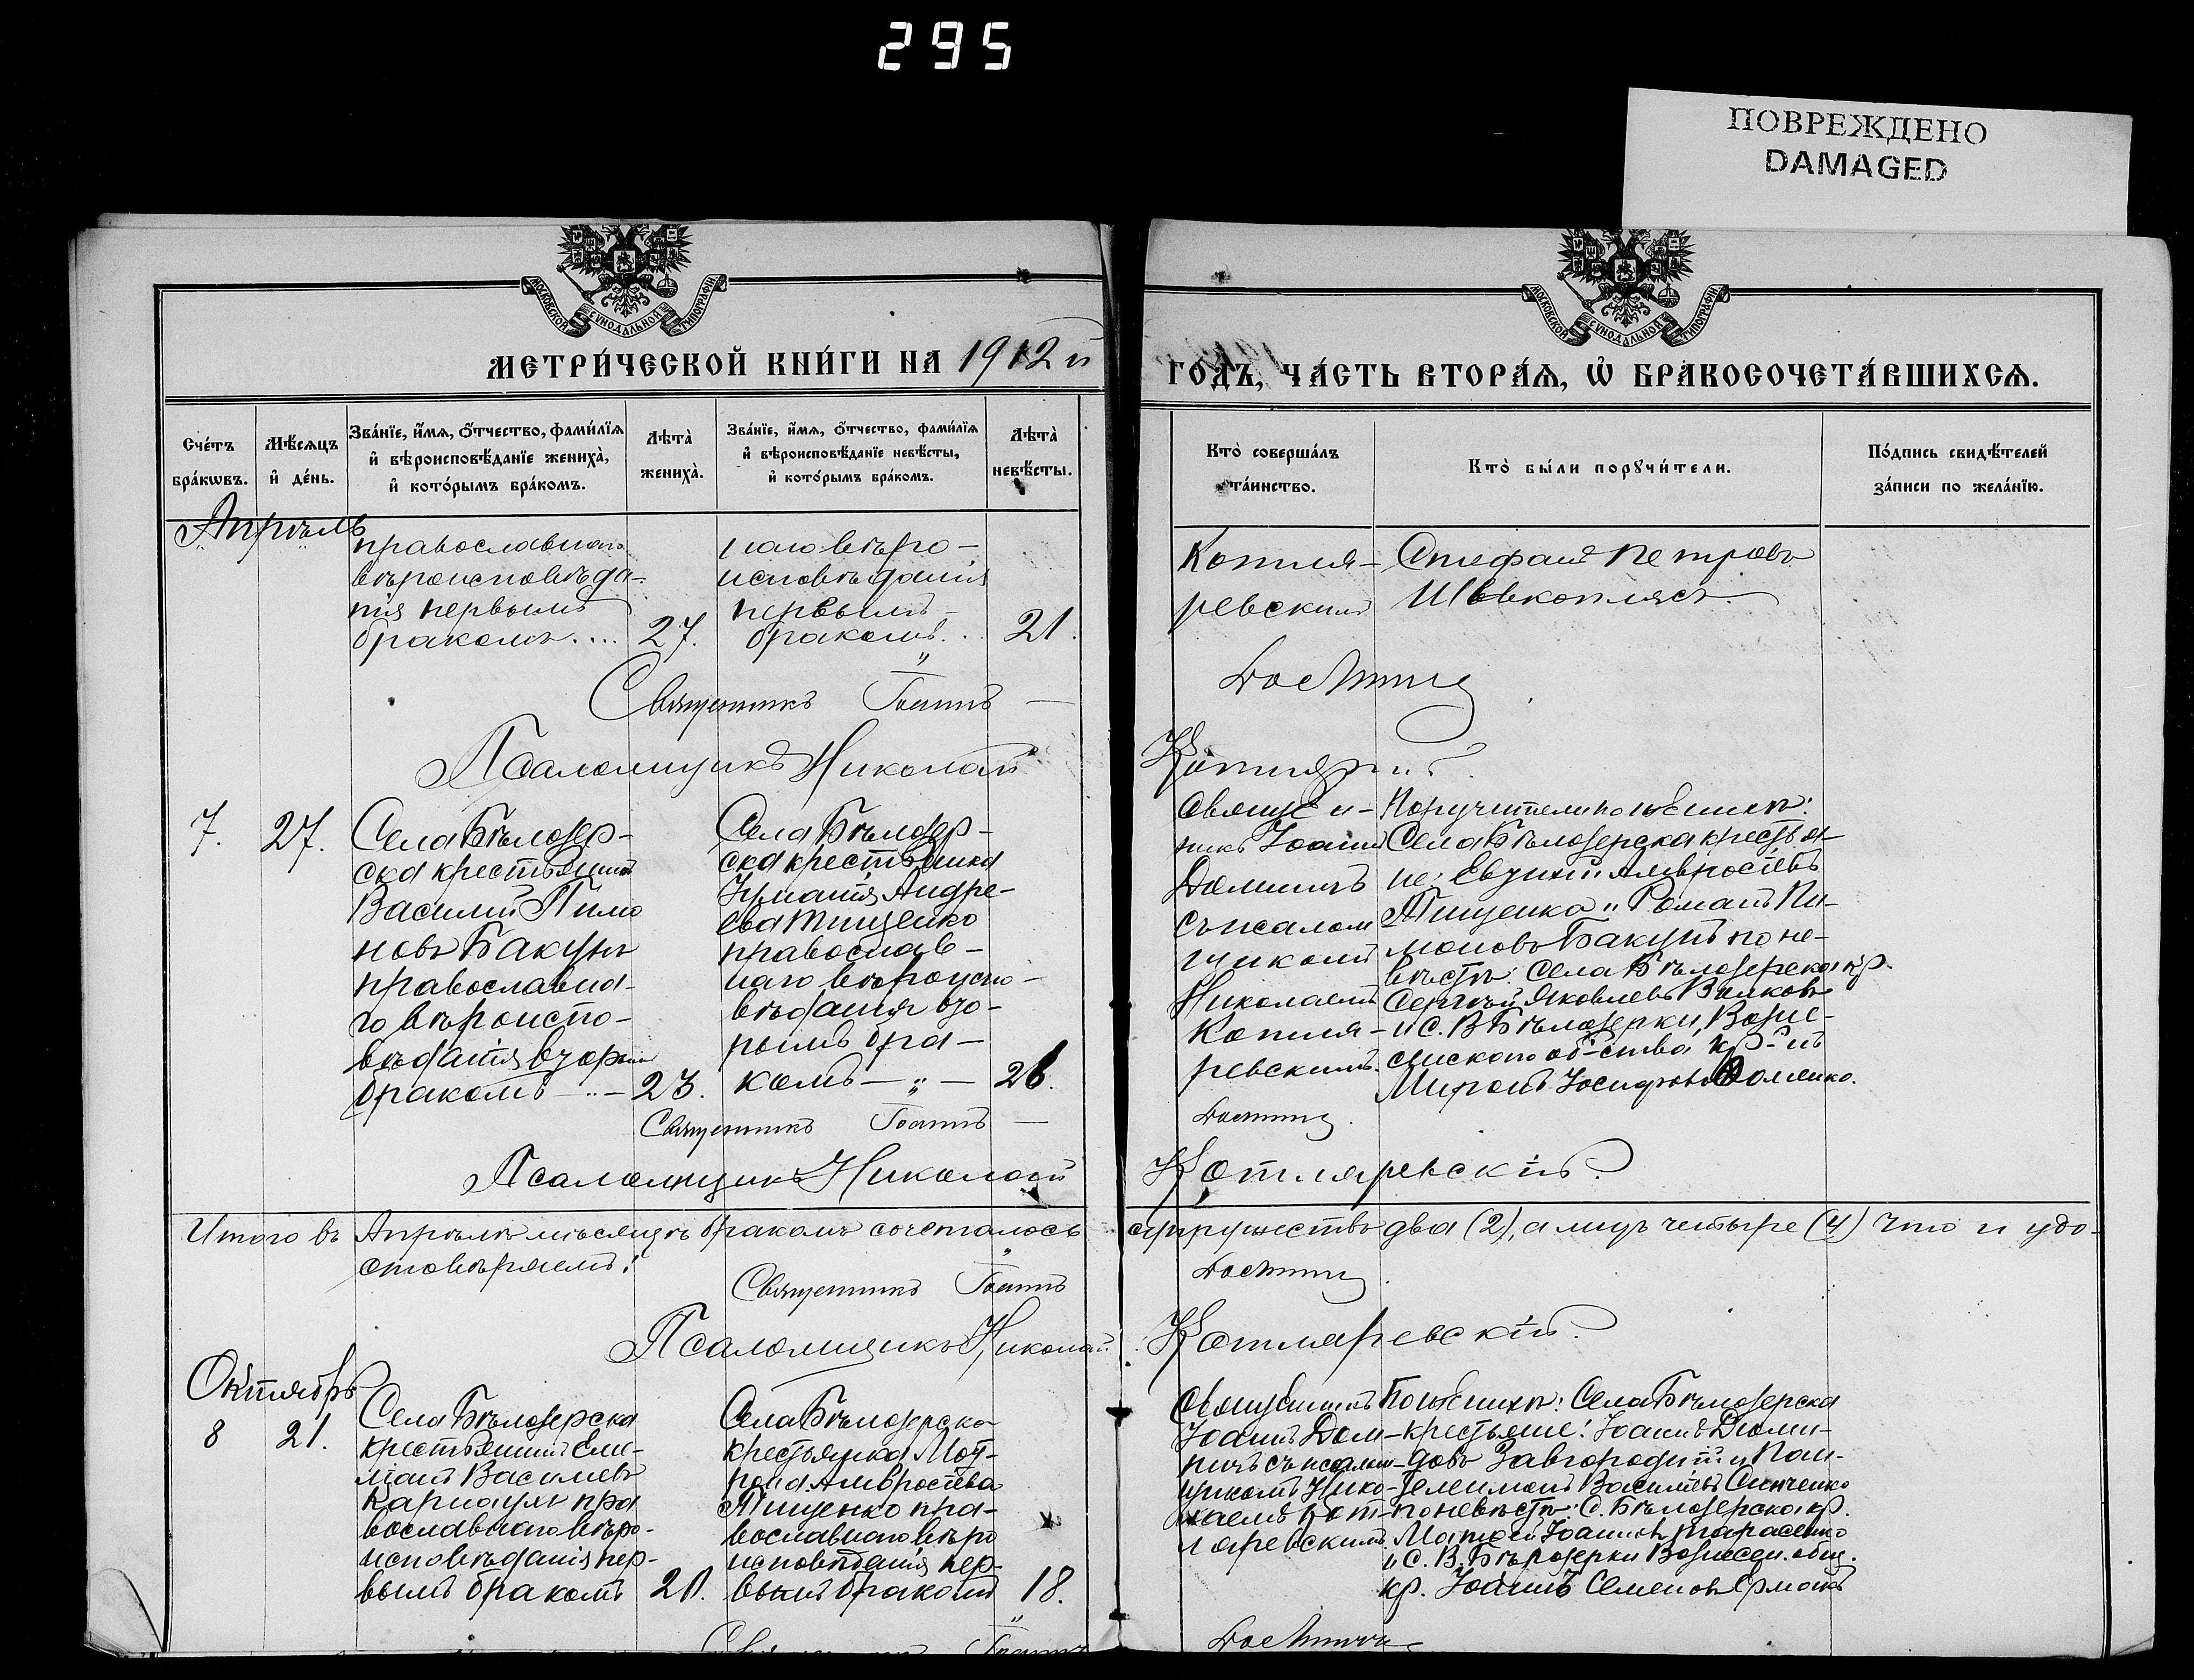 295
ПОВРЕЖДЕНО
DAMAGED
МОСКОВСКОЙ СУНОДАЛЬНОЙ ТИПОГРАФІИ
МОСКОВСКОЙ СУНОДАЛЬНОЙ ТИПОГРАФІИ
МЕТРИ́ЧЕСКОЙ КНИ́ГИ НА 1912 й
ГО́ДЪ, ЧА́СТЬ ВТОРА́Я, Ѡ҆ БРАКОСОЧЕТА́ВШИХСЯ.
Сче́тъ бра́кѡвъ.
Мѣ́сяцъ и҆ де́нь.
Зва́нїе, и҆́мя, ѻ҆́тчество, фами́лїя
и҆ вѣроисповѣ́данїе жениха̀,
и҆ кото́рымъ бра́комъ.
Лѣта̀
жениха̀.
Зва́нїе, и҆́мя, ѻ҆́тчество, фами́лїя
и҆ вѣроисповѣ́данїе невѣ́сты,
и҆ кото́рымъ бра́комъ.
Лѣта̀
невѣ́сты.
Кто̀ соверша́лъ
та́инство.
Кто̀ бы́ли порꙋчи́тели.
По́дпись свидѣ́телей
за́писи по жела́нїю.
Апрѣль
православнаго
вѣроисповѣда-
нія первымъ
бракомъ.... 27.
наго вѣро-
исповѣданія
первымъ
бракомъ... 21.
Котля-
ревскимъ
Стефанъ Петровъ
Шевкоплясъ.
Священникъ Іоаннъ —
Псаломщикъ Николай
7. 27.
Села Бѣлозер-
ска крестьянинъ
Василій Пимо
новъ Бакунъ
православна-
го вѣроиспо-
вѣданія вторымъ
бракомъ — 23.
Села Бѣлозер-
ска крестьянка
Андре-
ева Тищенко
православ-
наго вѣроиспо-
вѣданія вто-
рымъ бра-
комъ — „ — 26.
Священ-
никъ Іоаннъ
съ псалом
щикомъ
Николаемъ
Котля-
ревскимъ.
Поручители по женихѣ:
Села Бѣлозерска крестья-
не: Евдимій Амвросіевъ
Тищенко и Романъ Пи-
моновъ Бакунъ по не-
вѣстѣ: Села Бѣлозерска кр.
Сергѣй Яковлевъ Волковъ
и С. В. Бѣлозерки, Возне-
сенскаго об-ства кр-нъ
Миронъ Іосифовъ Фоменко.
Священникъ Іоаннъ —
Псаломщикъ Николай
Котляревскій
Итого въ Апрѣлѣ мѣсяцѣ бракомъ сочеталось супружествъ два (2), а лицъ четыре (4) что и удо-
стовѣряемъ:
Священникъ Іоаннъ
Псаломщикъ Николай
Котляревскій.
Октябрь
8 21.
Села Бѣлозерска
крестьянинъ Еме-
ліанъ Васильевъ
Карнаухъ пра
вославнаго вѣро-
исповѣданія пер-
вымъ бракомъ 20.
Села Бѣлозерска
крестьянка Мот-
рона Амвросіева
Тищенко пра-
вославнаго вѣро
исповѣданія пер-
вымъ бракомъ 18.
Священникъ
Іоаннъ Дом-
ничъ съ псалом-
щикомъ Нико-
лаемъ Кот-
ляревскимъ.
По женихѣ: Села Бѣлозерска
крестьяне: Іоаннъ Діоми-
довъ Завгородній и Пан-
телеимонъ Васильевъ Синченко
по невѣстѣ: С. Бѣлозерска кр.
Матвѣй Іоанновъ Тарасенко
и С. В. Бѣлозерки Вознесен. общ.
кр. Іоаннъ Семеновъ Ермакъ